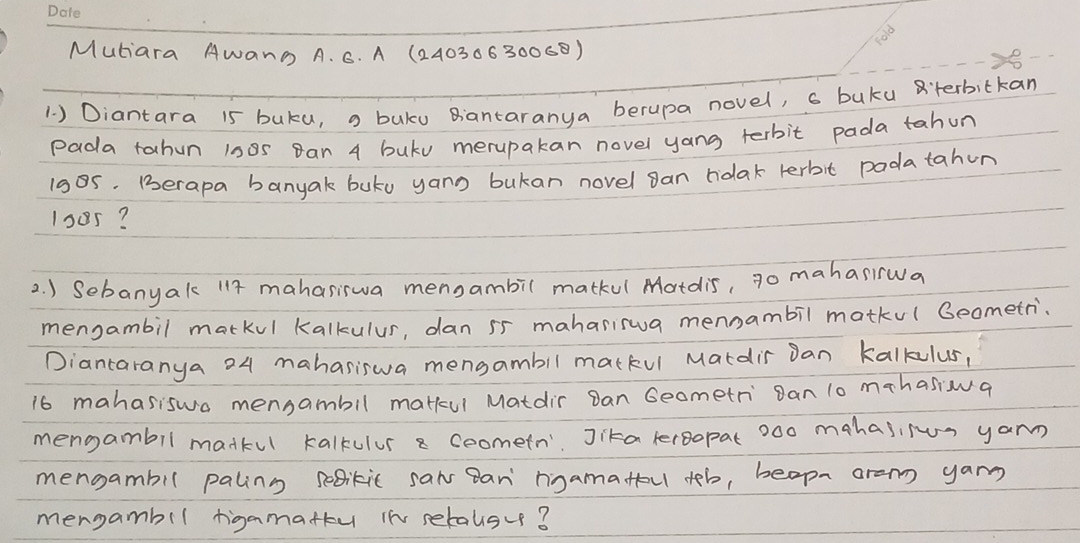 Date
Mutiara Awang A. G. A (24030630068)
Fold
1.) Diantara 15 buku, 9 buku diantaranya berupa novel, 6 buku diterbitkan
pada tahun 1985 dan 4 buku merupakan novel yang terbit pada tahun
1985. Berapa banyak buku yang bukan novel dan tidak terbit pada tahun
1985?
2.) Sebanyak 117 mahasiswa mengambil matkul Matdis, 70 mahasiswa
mengambil matkul Kalkulus, dan 55 mahasiswa mengambil matkul Geometri.
Diantaranya 24 mahasiswa mengambil matkul Matdis dan kalkulus,
16 mahasiswa mengambil matkul Matdis dan Geometri dan 10 mahasiswa
mengambil matkul kalkulus & Geometri. Jika terdapat 200 mahasiswa yang
mengambil paling sedikit satu dari tigamatkul tsb, beapa orang yang
mengambil tigamatku itu sekaligus?